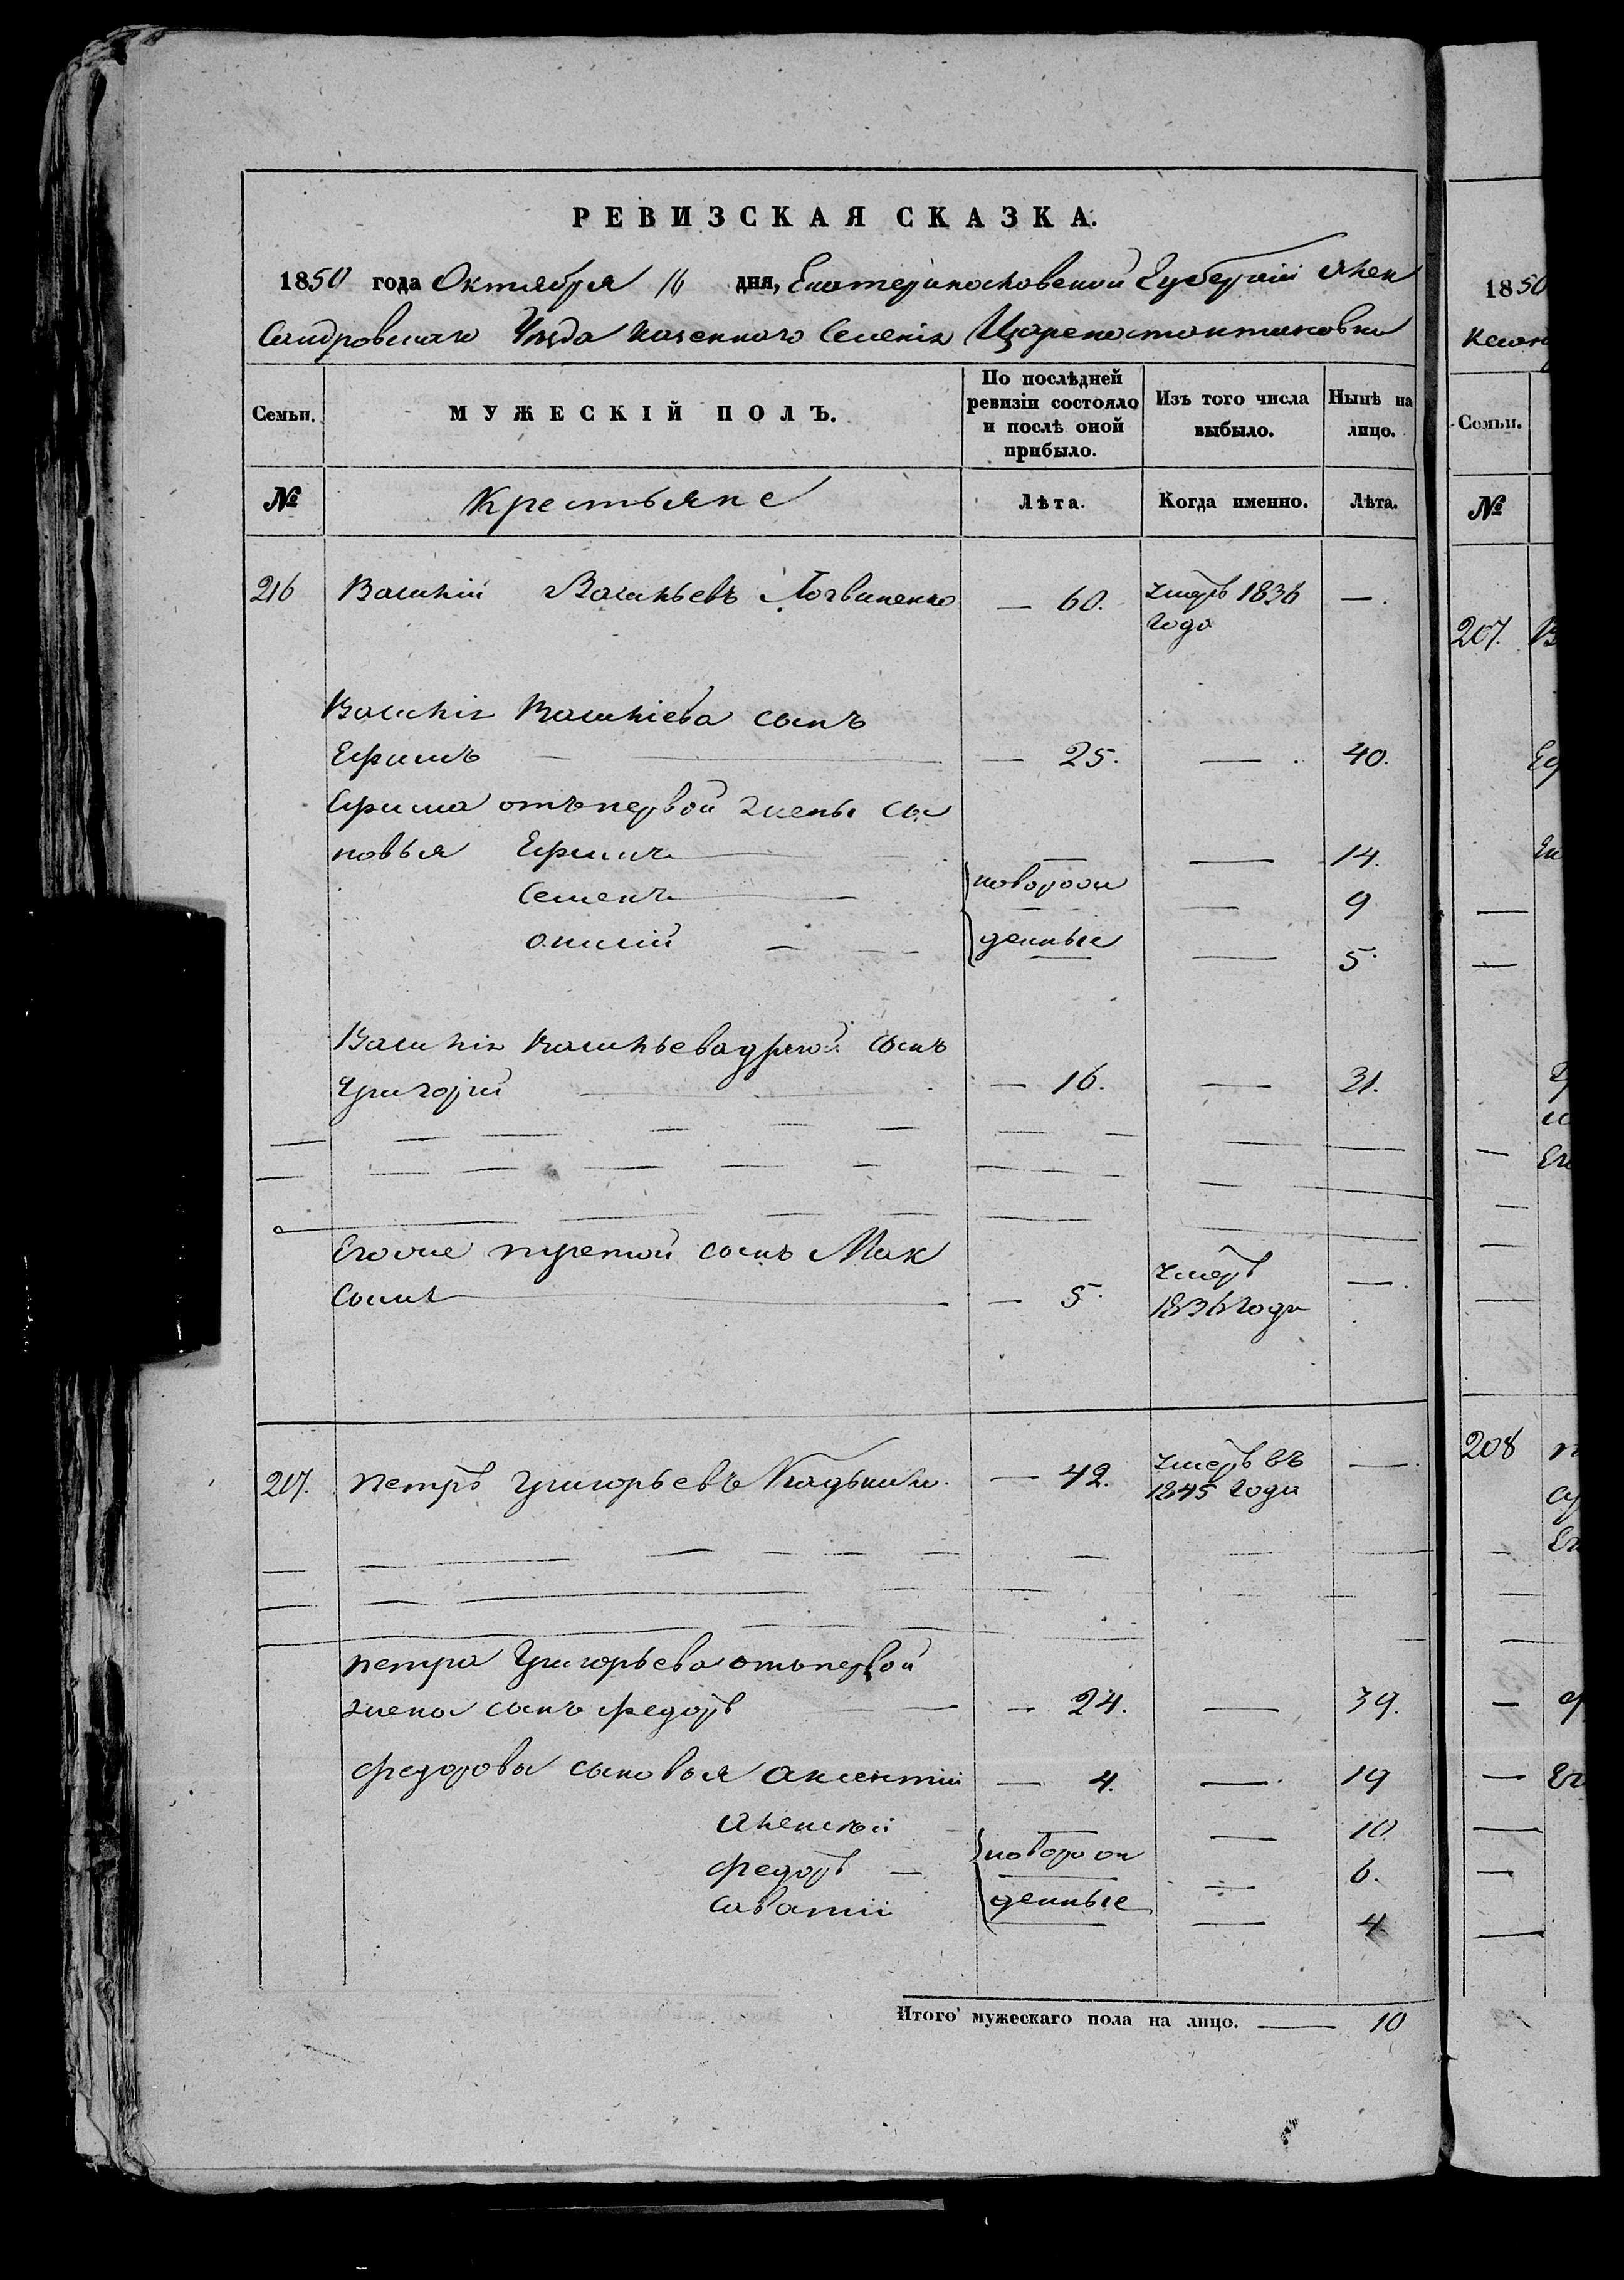 РЕВИЗСКАЯ СКАЗКА.
1850 года Октября 16 дня, Екатеринославской Губерніи Алек
сандровскаго Уезда казеннаго Селенія Цареконстантиновки
Семьи. МУЖЕСКІЙ ПОЛЪ. По послѣдней ревизіи состояло и послѣ оной прибыло. Изъ того числа выбыло. Нынѣ на лицо.
№ Крестьяне Лѣта. Когда именно. Лѣта.
216 Василій Васильевъ Логвиненко — 60. умеръ 1836 года —.
Василія Василіева сынъ
Ефимъ — — 25. — . 40.
Ефима отъ первой жены сы
новья Ефимъ — — — 14.
Семенъ — новорож — 9
денные — 5.
Василія Васильева другой сынъ
Григорій — — 16. — 31.
Его же третій сынъ Мак
симъ — — 5. умеръ 1836 года —.
217. Петръ Григорьевъ — 42. умеръ въ 1845 году —.
Петра Григорьева отъ первой
жены сынъ Федоръ — — 24. — 39.
Федорова сыновья Аксентій — 4. — 19
Алексѣй — — 10
Федоръ — новорож — 6.
Саватій денные — 4
Итого мужескаго пола на лицо. — 10
1850
Семьи.
№
207.
208